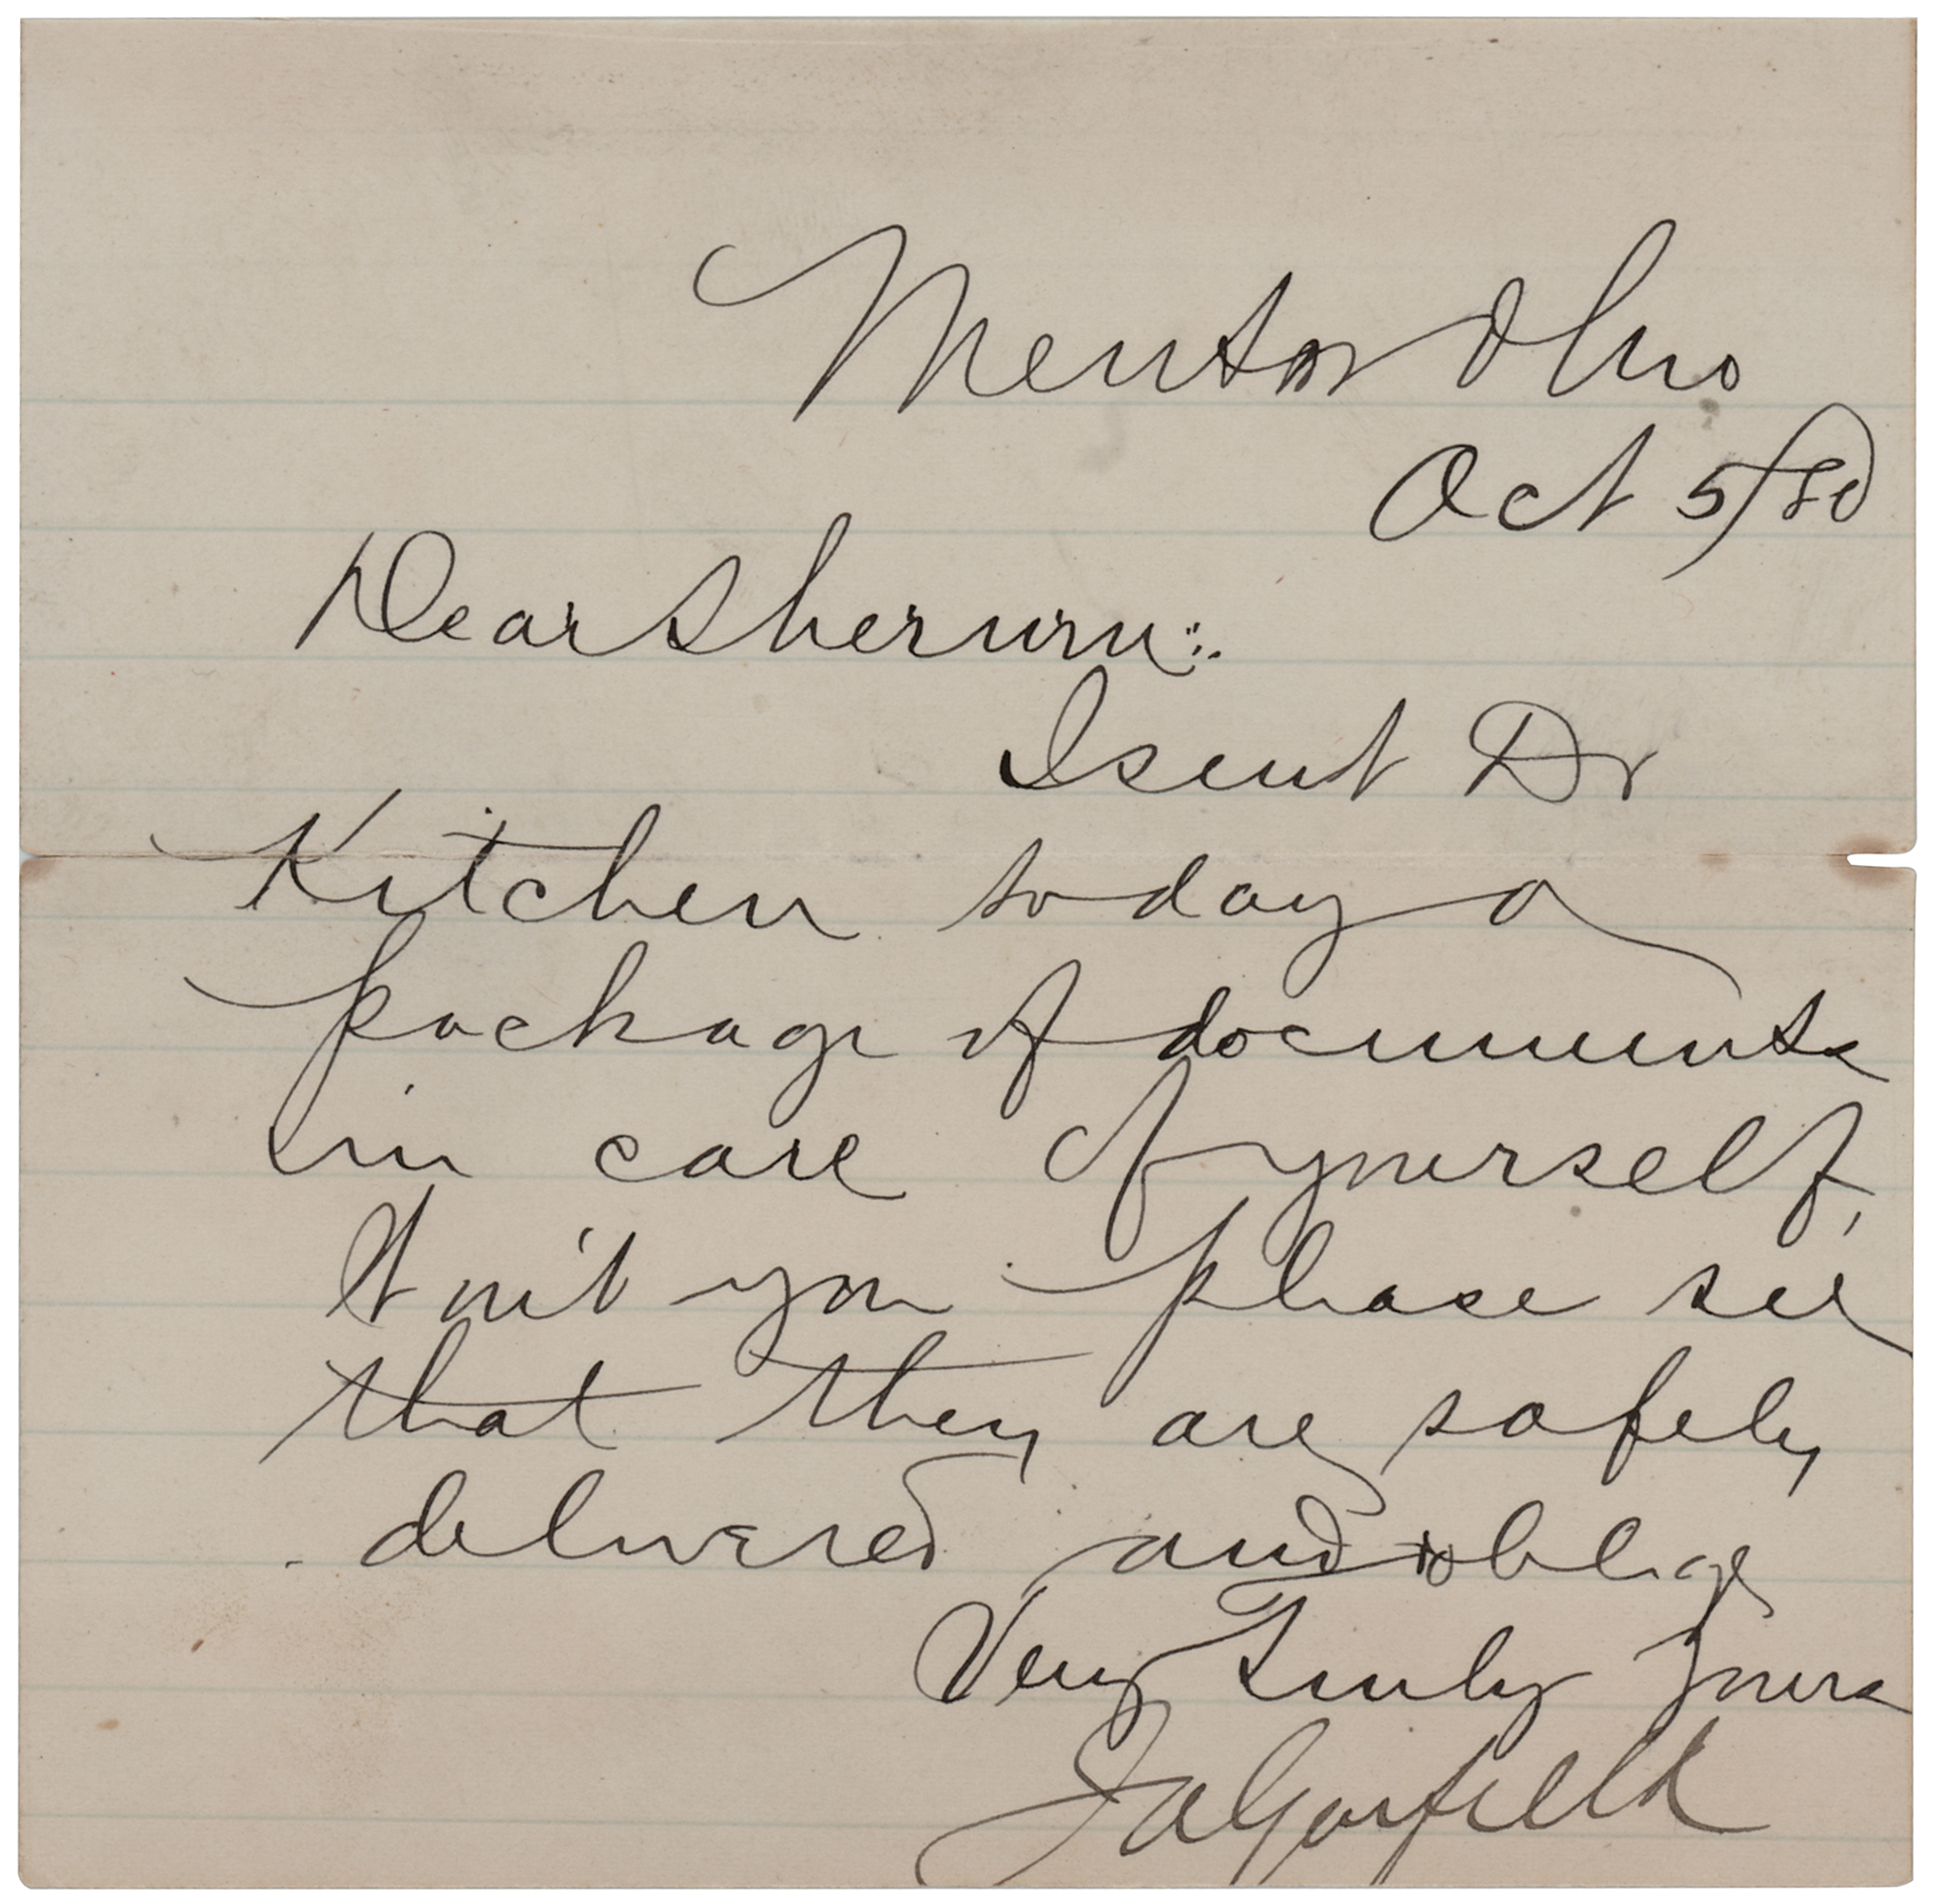 Mentor Ohio
Oct 5/80
Dear Sherwin:
I sent Dr
Kitchen today a
package of documents
in care of yourself,
Won't you please see
that they are safely
delivered and oblige
Very Truly Yours
JAGarfield